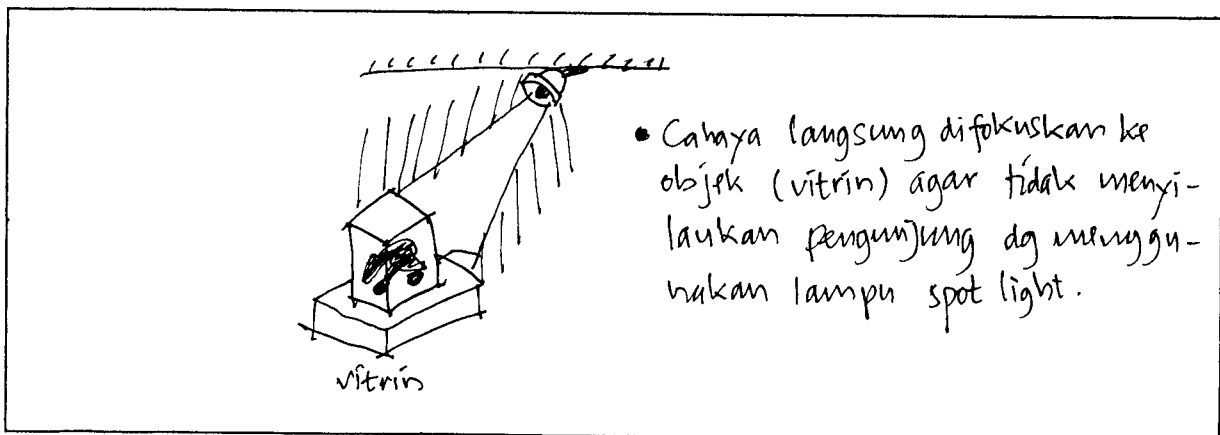 • Cahaya langsung difokuskan ke
objek (vitrin) agar tidak menyi-
laukan pengunjung dg menggu-
nakan lampu spot light.
vitrin